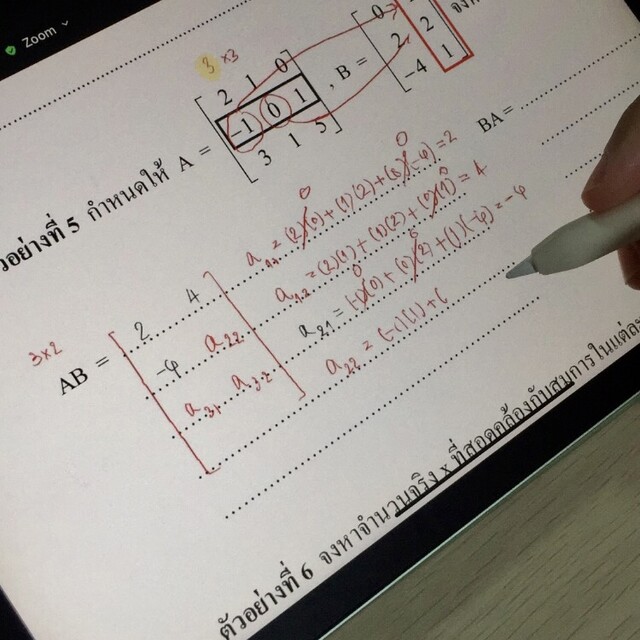 Zoom
3 x3
ตัวอย่างที่ 5 กำหนดให้ A = [2 1 0 -1 0 1 3 1 5], B = [0 2 2 -4 1]
BA =
a11 = (2)(0)+(1)(2)+(0)(-4) = 2
a12 = (2)(1)+(1)(2)+(0)(1) = 4
a21 = (-1)(0)+(0)(2)+(1)(-4) = -4
a22 = (-1)(1)+(
3x2
AB =
2 4
-4 a22
a31 a32
ตัวอย่างที่ 6 จงหาจำนวนจริง x ที่สอดคล้องกับสมการในแต่ละ